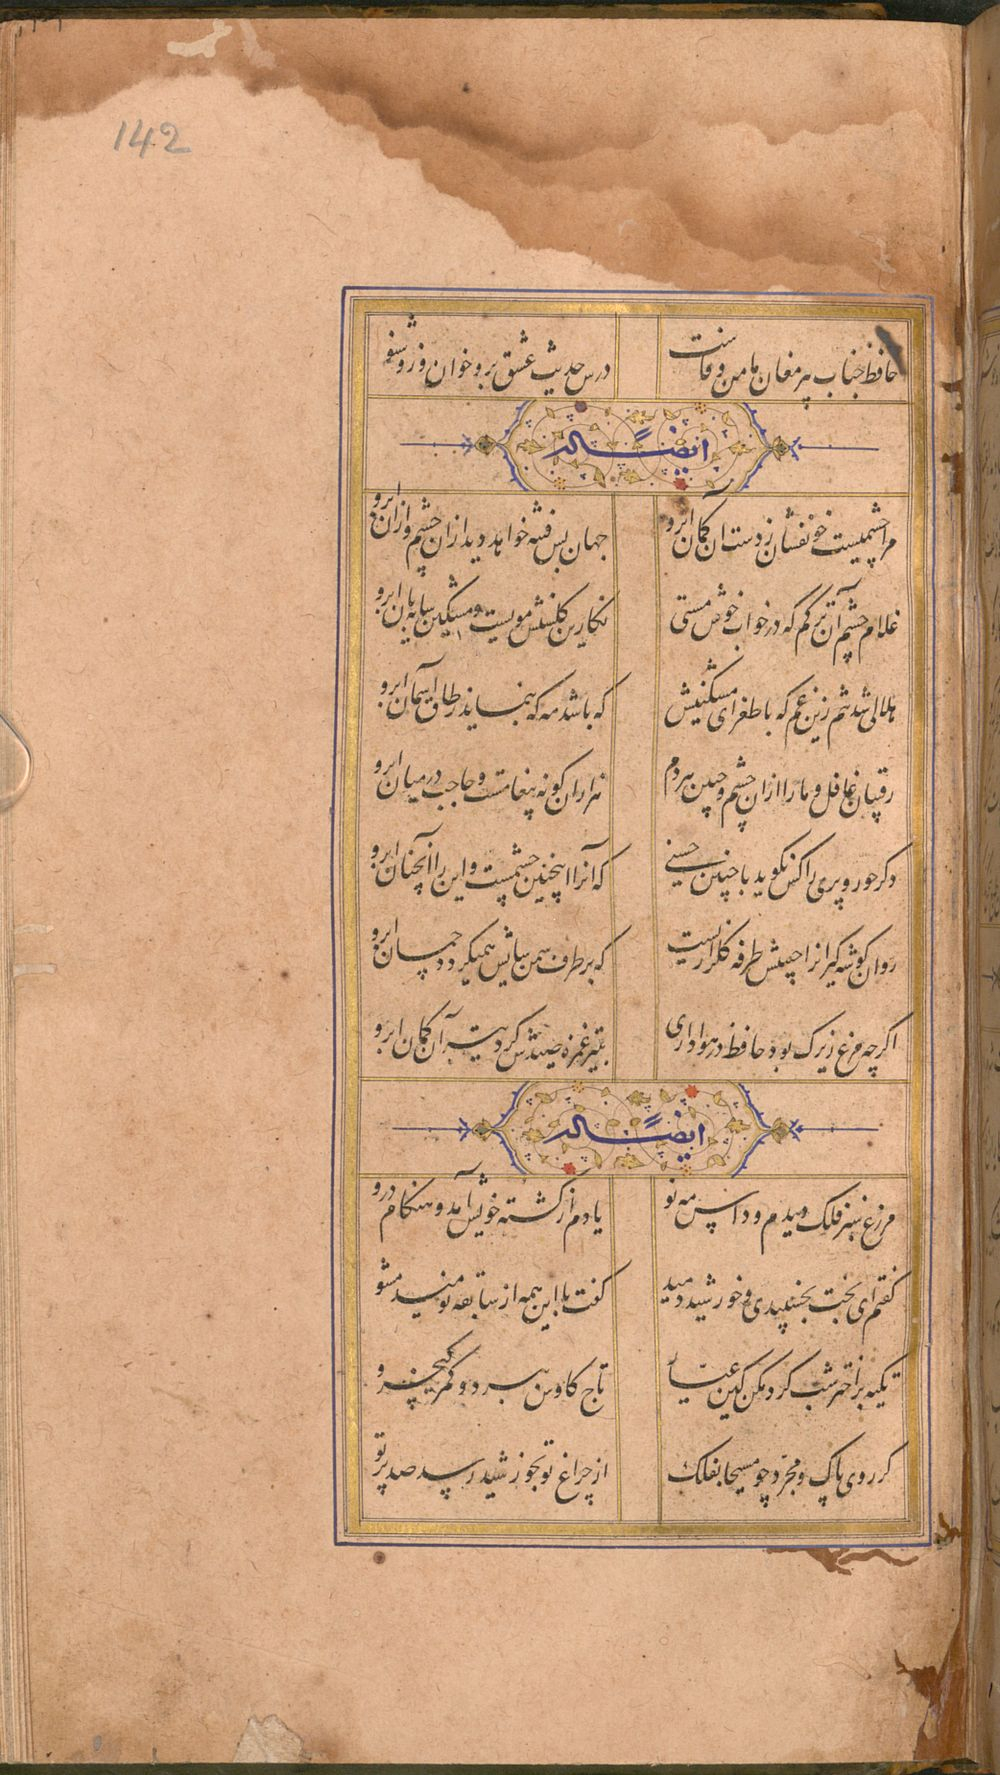 142
حافظ جناب پیر مغان مامن وفاست
درس حدیث عشق برو خوان وزو شنو
ایضاً له
مرا چشمیست خونفشان ز دست آن کمان ابرو
جهان بس فتنه خواهد دید از آن چشم و از آن ابرو
غلام چشم آن ترکم که در خواب خوش مستی
نکارین کلشنش رویست و مشکین سایه بان ابرو
هلالی شد تنم زین غم که با طغرای مشکینش
که باشد مه که بنماید ز طاق آسمان ابرو
رقیبان غافل و ما را از آن چشم و جبین هر دم
هزاران کونه پیغامست و حاجب در میان ابرو
دکر حور و پری را کس نکوید با چنین حسنی
که آنرا اینچنین چشمست و این را آنچنان ابرو
روان کوشه کیرانرا جبینش طرفه کلزاریست
که بر طرف سمن سایش همیکردد چمان ابرو
اکرچه مرغ زیرک بود حافظ در هواداری
بتیر غمزه صیدش کرد چشم آن کمان ابرو
ایضاً له
مزرع سبز فلک دیدم و داس مه نو
یادم از کشته خویش آمد و هنکام درو
کفتم ای بخت بخسپیدی و خورشید دمید
کفت با این همه از سابقه نومید مشو
تکیه بر اختر شب کرد مکن کین عیار
تاج کاوس ببرد و کمر کیخسرو
کر روی پاک و مجرد چو مسیحا بفلک
از چراغ تو بخورشید رسد صد پرتو